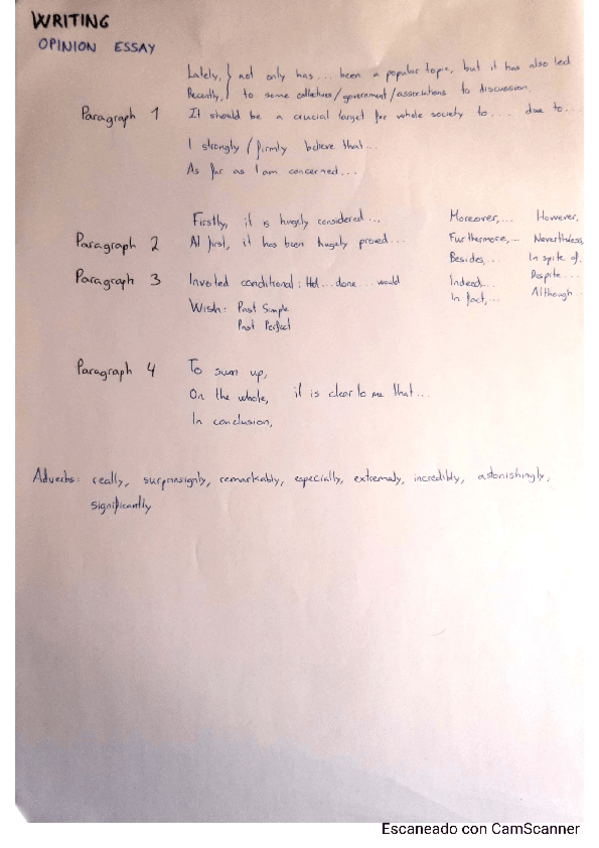 WRITING
OPINION ESSAY
Lately, } not only has... been a popular topic, but it has also led
Recently, } to some collectives/government/associations to discussion.
Paragraph 1 It should be a crucial target for whole society to.... due to...
I strongly / firmly believe that...
As far as I am concerned...
Firstly, it is hugely considered... Moreover,... However,
Paragraph 2 At first, it has been hugely proved... Furthermore,... Nevertheless,
Besides,... In spite of.
Paragraph 3 Inverted conditional: Had...done...would Indeed... Despite...
Wish: Past Simple In fact,... Although...
Past Perfect
Paragraph 4 To sum up,
On the whole, it is clear to me that...
In conclusion,
Adverbs: really, surprisingly, remarkably, especially, extremely, incredibly, astonishingly,
significantly
Escaneado con CamScanner